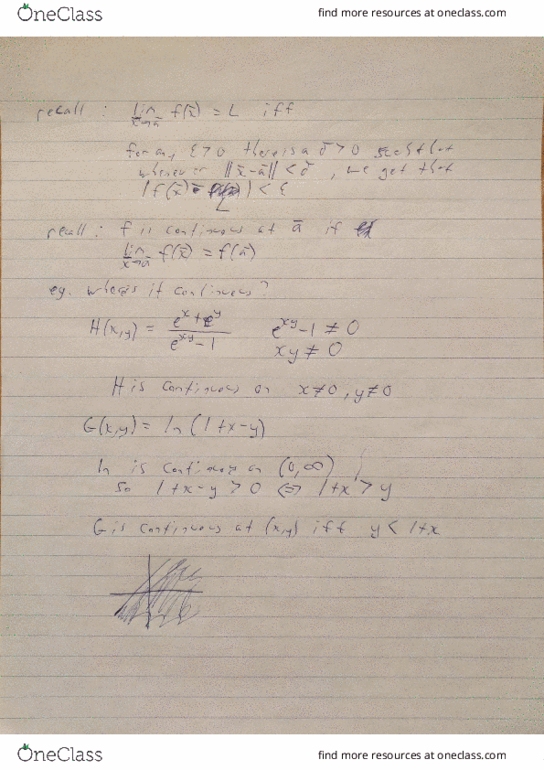 OneClass
find more resources at oneclass.com
recall : lim f(x̄) = L iff
x̄→ā
for any ε > 0 there is a δ > 0 such that
whenever ||x̄-ā|| < δ , we get that
|f(x̄) - L| < ε
recall : f is continuous at ā if
lim f(x̄) = f(ā)
x̄→ā
eg. where is it continuous?
H(x,y) = (e^x + e^y)/(e^xy - 1) e^xy - 1 ≠ 0
xy ≠ 0
H is continuous on x≠0, y≠0
G(x,y) = ln(1+x-y)
ln is continuous on (0,∞)
so 1+x-y > 0 ⇔ 1+x > y
G is continuous at (x,y) iff y < 1+x
OneClass
find more resources at oneclass.com